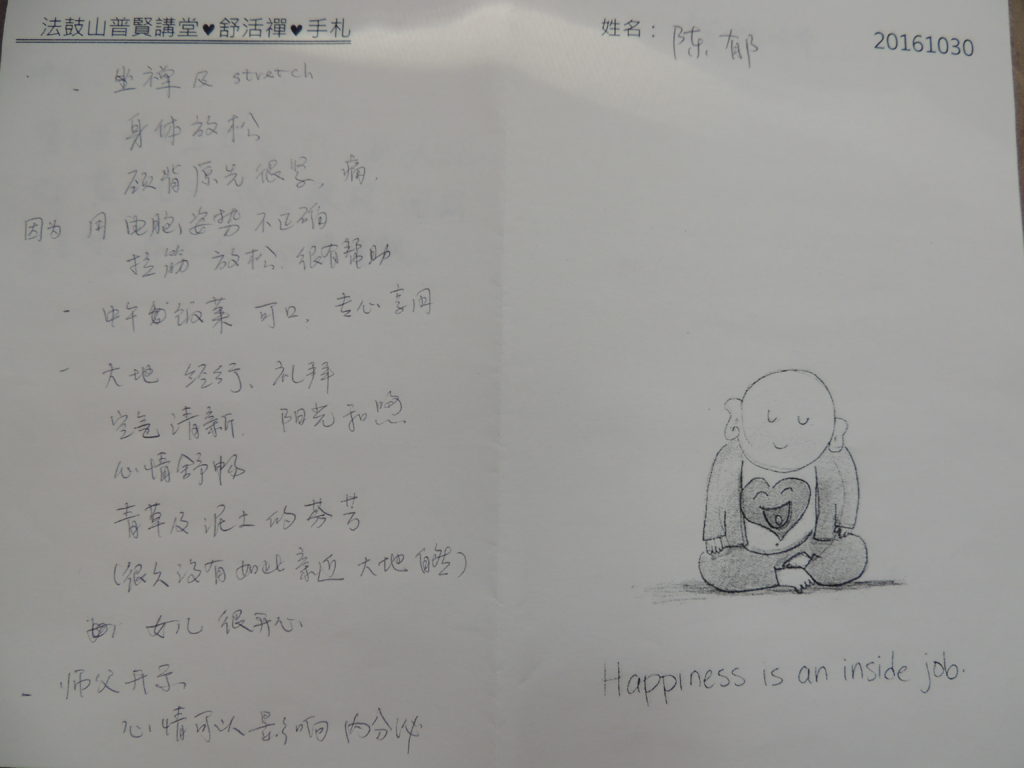 法鼓山普賢講堂♥舒活禪♥手札
姓名： 陈郁
20161030
- 坐禅及 stretch
身体放松
颈背原先很紧，痛.
因为 用电脑，姿势不正确
拉筋 放松. 很有帮助
- 中午 饭菜 可口，专心享用
- 大地 经行、礼拜
空气清新. 阳光和煦
心情舒畅
青草及泥土的芬芳
(很久没有如此亲近 大地自然)
女儿 很开心
- 师父开示、
心情可以影响内分泌
Happiness is an inside job.